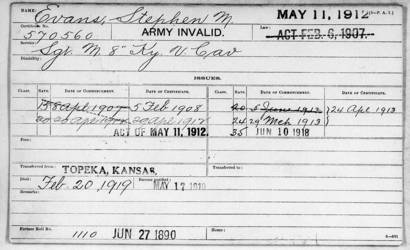 NAME: Evans, Stephen M. MAY 11, 1912
570560 ARMY INVALID. ACT FEB. 6, 1907.
SERVICE:
Sgt. M. 8" Ky. V. Cav
DISABILITY:
ISSUES.
CLASS. RATE. DATE OF COMMENCEMENT. DATE OF CERTIFICATE. CLASS. RATE. DATE OF COMMENCEMENT. DATE OF CERTIFICATE.
Apl 1907 5 Feb 1908 20 5 June 1913 24 Apl 1913
24 29 Mch 1913
ACT OF MAY 11, 1912. 35 JUN 10 1918
Fees:
Transferred from TOPEKA, KANSAS,
Died: Feb. 20 1919 MAY 17 1919
Remarks:
Former Roll No. 1110 JUN 27 1890